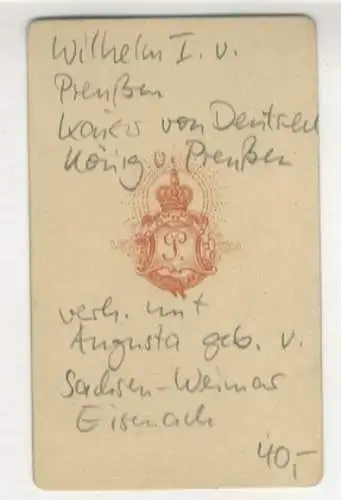 Wilhelm I. v.
Preußen
Kaiser von Deutschl
König v. Preußen
P
verh. mit
Augusta geb. v.
Sachsen-Weimar
Eisenach
40,-